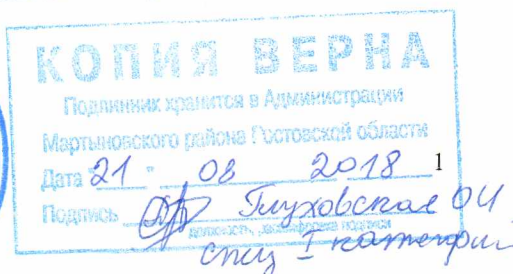 КОПИЯ ВЕРНА
Подлинник хранится в Администрации
Мартыновского района Ростовской области
Дата "21" 08 2018 1
Подпись Глуховская ОИ
должность, расшифровка подписи
спец I категории